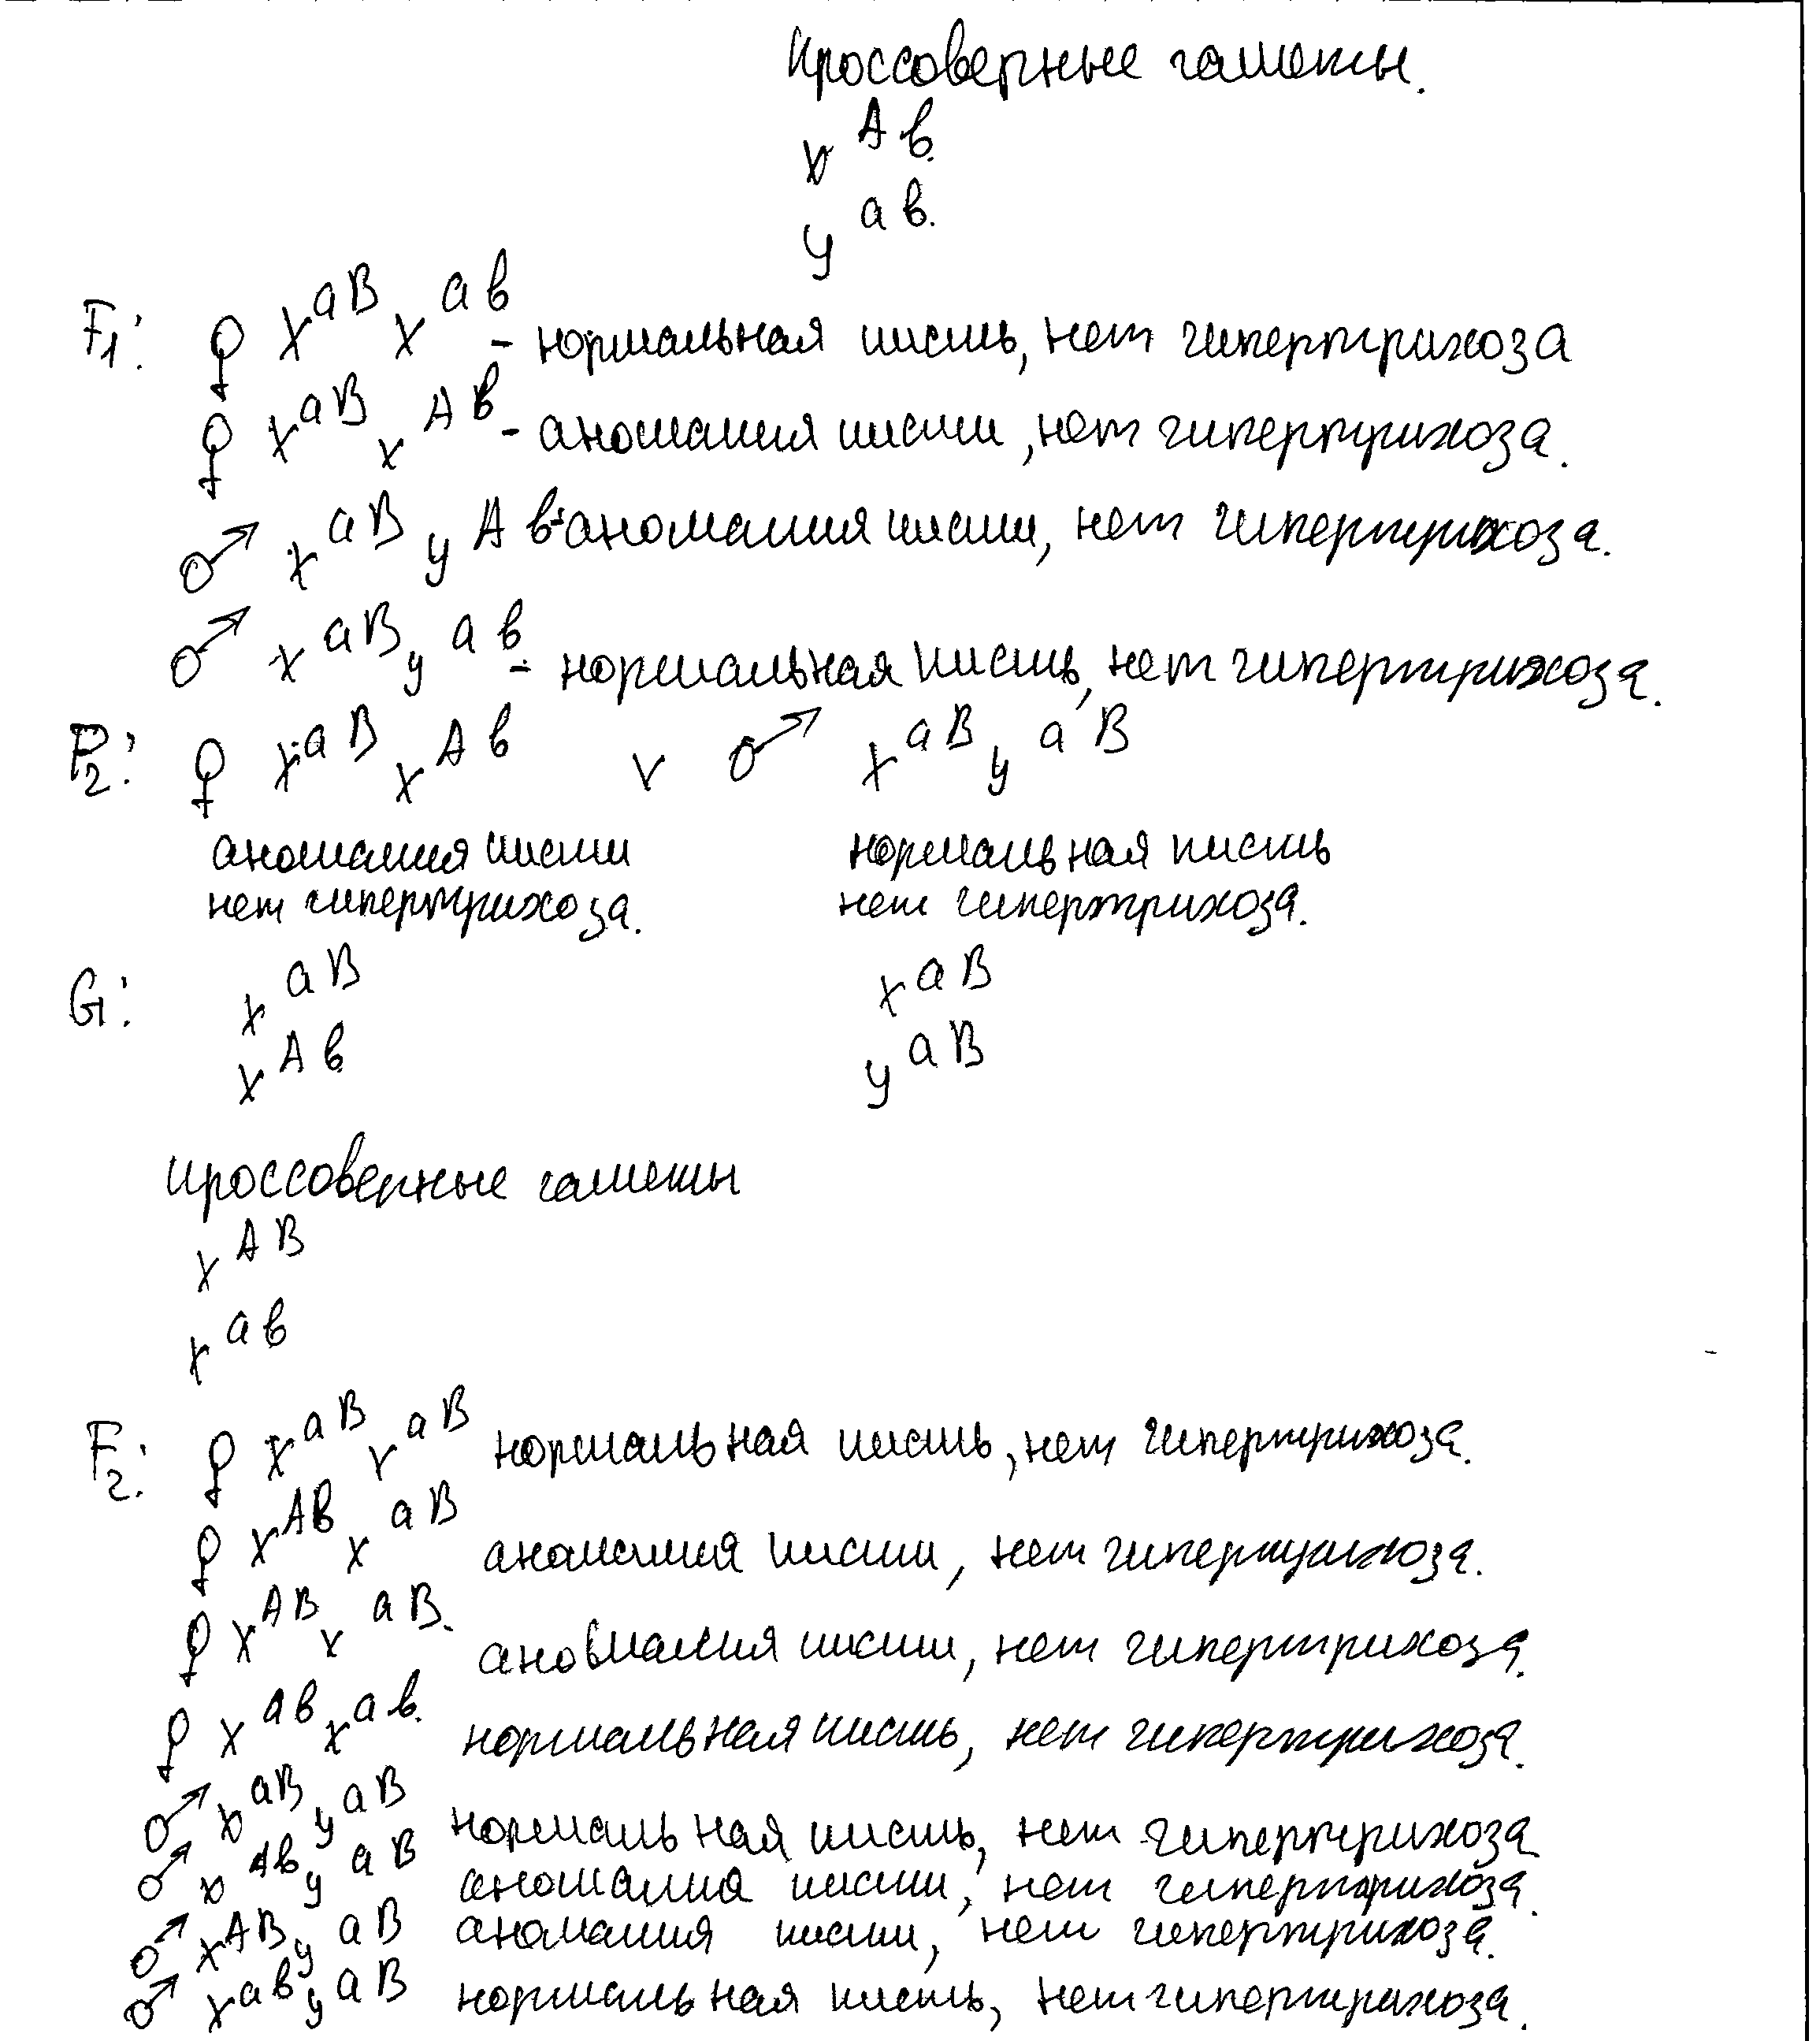 Кроссоверные гаметы.
X^Aв
y^aв.
F1: ♀ X^aB X^aв - нормальная кисть, нет гипертрихоза
♀ X^aB X^Aв - аномалия кисти, нет гипертрихоза.
♂ X^aB y^Aв - аномалия кисти, нет гипертрихоза.
♂ X^aB y^aв - нормальная кисть, нет гипертрихоза.
P2: ♀ X^aB X^Aв x ♂ X^aB y^aB
аномалия кисти нормальная кисть
нет гипертрихоза. нет гипертрихоза.
G: X^aB X^aB
X^Aв y^aB
кроссоверные гаметы
X^AB
X^aв
F2: ♀ X^aB X^aB нормальная кисть, нет гипертрихоза.
♀ X^Aв X^aB аномалия кисти, нет гипертрихоза.
♀ X^AB X^aB. аномалия кисти, нет гипертрихоза.
♀ X^aв X^aв. нормальная кисть, нет гипертрихоза.
♂ X^aB y^aB нормальная кисть, нет гипертрихоза
♂ X^Aв y^aB аномалия кисти, нет гипертрихоза.
♂ X^AB y^aB аномалия кисти, нет гипертрихоза.
♂ X^aв y^aB нормальная кисть, нет гипертрихоза.